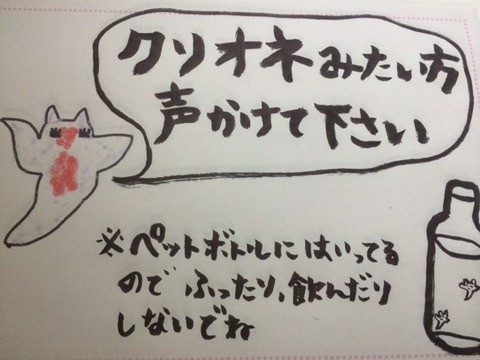 クリオネみたい方
声かけて下さい
※ペットボトルにはいってる
のでふったり、飲んだり
しないでね